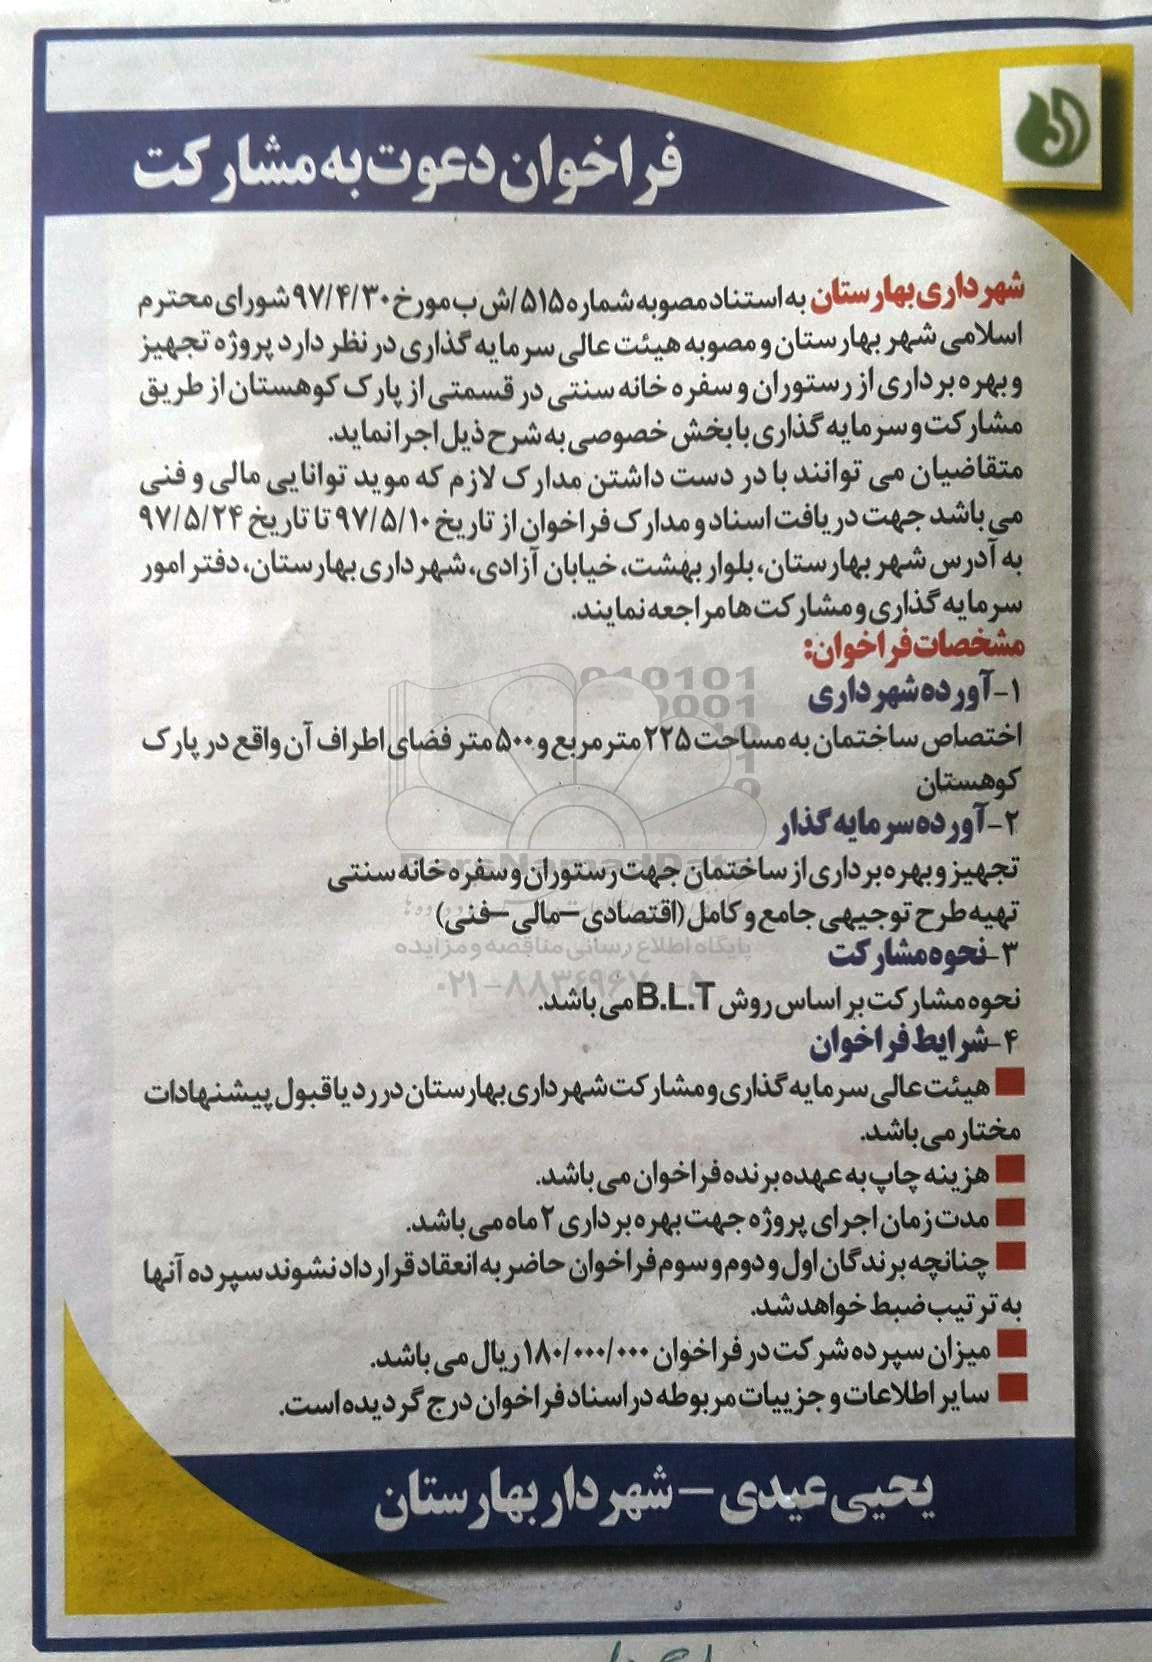 فراخوان دعوت به مشارکت
شهرداری بهارستان به استناد مصوبه شماره ۵۱۵/ش ب مورخ ۹۷/۴/۳۰ شورای محترم
اسلامی شهر بهارستان و مصوبه هیئت عالی سرمایه گذاری در نظر دارد پروژه تجهیز
و بهره برداری از رستوران و سفره خانه سنتی در قسمتی از پارک کوهستان از طریق
مشارکت و سرمایه گذاری با بخش خصوصی به شرح ذیل اجرا نماید.
متقاضیان می توانند با در دست داشتن مدارک لازم که موید توانایی مالی و فنی
می باشد جهت دریافت اسناد و مدارک فراخوان از تاریخ ۹۷/۵/۱۰ تا تاریخ ۹۷/۵/۲۴
به آدرس شهر بهارستان، بلوار بهشت، خیابان آزادی، شهرداری بهارستان، دفتر امور
سرمایه گذاری و مشارکت ها مراجعه نمایند.
مشخصات فراخوان:
۱-آورده شهرداری
اختصاص ساختمان به مساحت ۲۲۵ متر مربع و ۵۰۰ متر فضای اطراف آن واقع در پارک
کوهستان
۲-آورده سرمایه گذار
تجهیز و بهره برداری از ساختمان جهت رستوران و سفره خانه سنتی
تهیه طرح توجیهی جامع و کامل (اقتصادی-مالی-فنی)
پایگاه اطلاع رسانی مناقصه و مزایده
۳-نحوه مشارکت
۰۲۱-۸۸۳۴۹۶۷۰-۵
نحوه مشارکت بر اساس روش B.L.T می باشد.
۴-شرایط فراخوان
هیئت عالی سرمایه گذاری و مشارکت شهرداری بهارستان در رد یا قبول پیشنهادات
مختار می باشد.
هزینه چاپ به عهده برنده فراخوان می باشد.
مدت زمان اجرای پروژه جهت بهره برداری ۲ ماه می باشد.
چنانچه برندگان اول و دوم و سوم فراخوان حاضر به انعقاد قرارداد نشوند سپرده آنها
به ترتیب ضبط خواهد شد.
میزان سپرده شرکت در فراخوان ۱۸۰/۰۰۰/۰۰۰ ریال می باشد.
سایر اطلاعات و جزییات مربوطه در اسناد فراخوان درج گردیده است.
یحیی عیدی - شهردار بهارستان